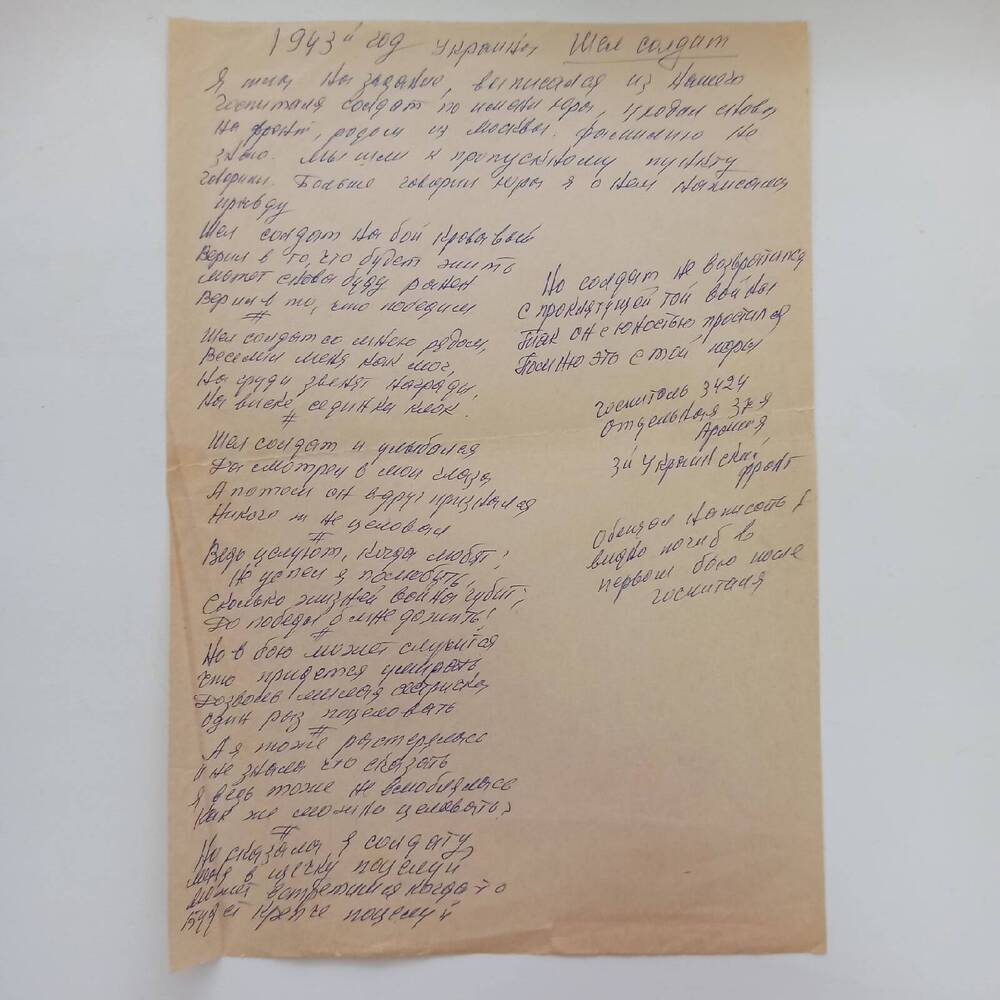 1943й год Украина Шел солдат
Я шла на задание, выписался из нашего
госпиталя солдат по имени Юра, уходил снова
на фронт, родом из Москвы. Фамилию не
знаю. Мы шли к пропускному пункту
говорили. Больше говорил Юра я о нем написала
правду
Шел солдат на бой кровавый
Верил в то, что будет жить
Может снова буду ранен
Верил в то, что победим
#
Шел солдат со мною рядом,
Веселил меня как мог,
На груди звенят награды,
На виске, седины клок.
#
Шел солдат и улыбался
Да смотрел в мои глаза
А потом он вдруг признался
Никого не целовал
#
Ведь целуют, когда любят,
Не успел я полюбить,
Сколько жизней война губит,
До победы б мне дожить!
#
Но в бою может случится
что придется умирать
Дозволь милая сестричка
один раз поцеловать
#
А я тоже растерялась
и не знала что сказать
Я ведь тоже не влюблялась
Как же можно целовать?
#
Но сказала я солдату,
меня в щечку поцелуй
Может встретимся когда-то
Будет крепче поцелуй
Но солдат не возвратился
с проклятущей той войны
Так он с юностью простился
Помню это с той поры
Госпиталь 3424
Отдельная 37я
Армия
3й Украинский
фронт
Обещал написать
видно погиб в
первом бою после
госпиталя